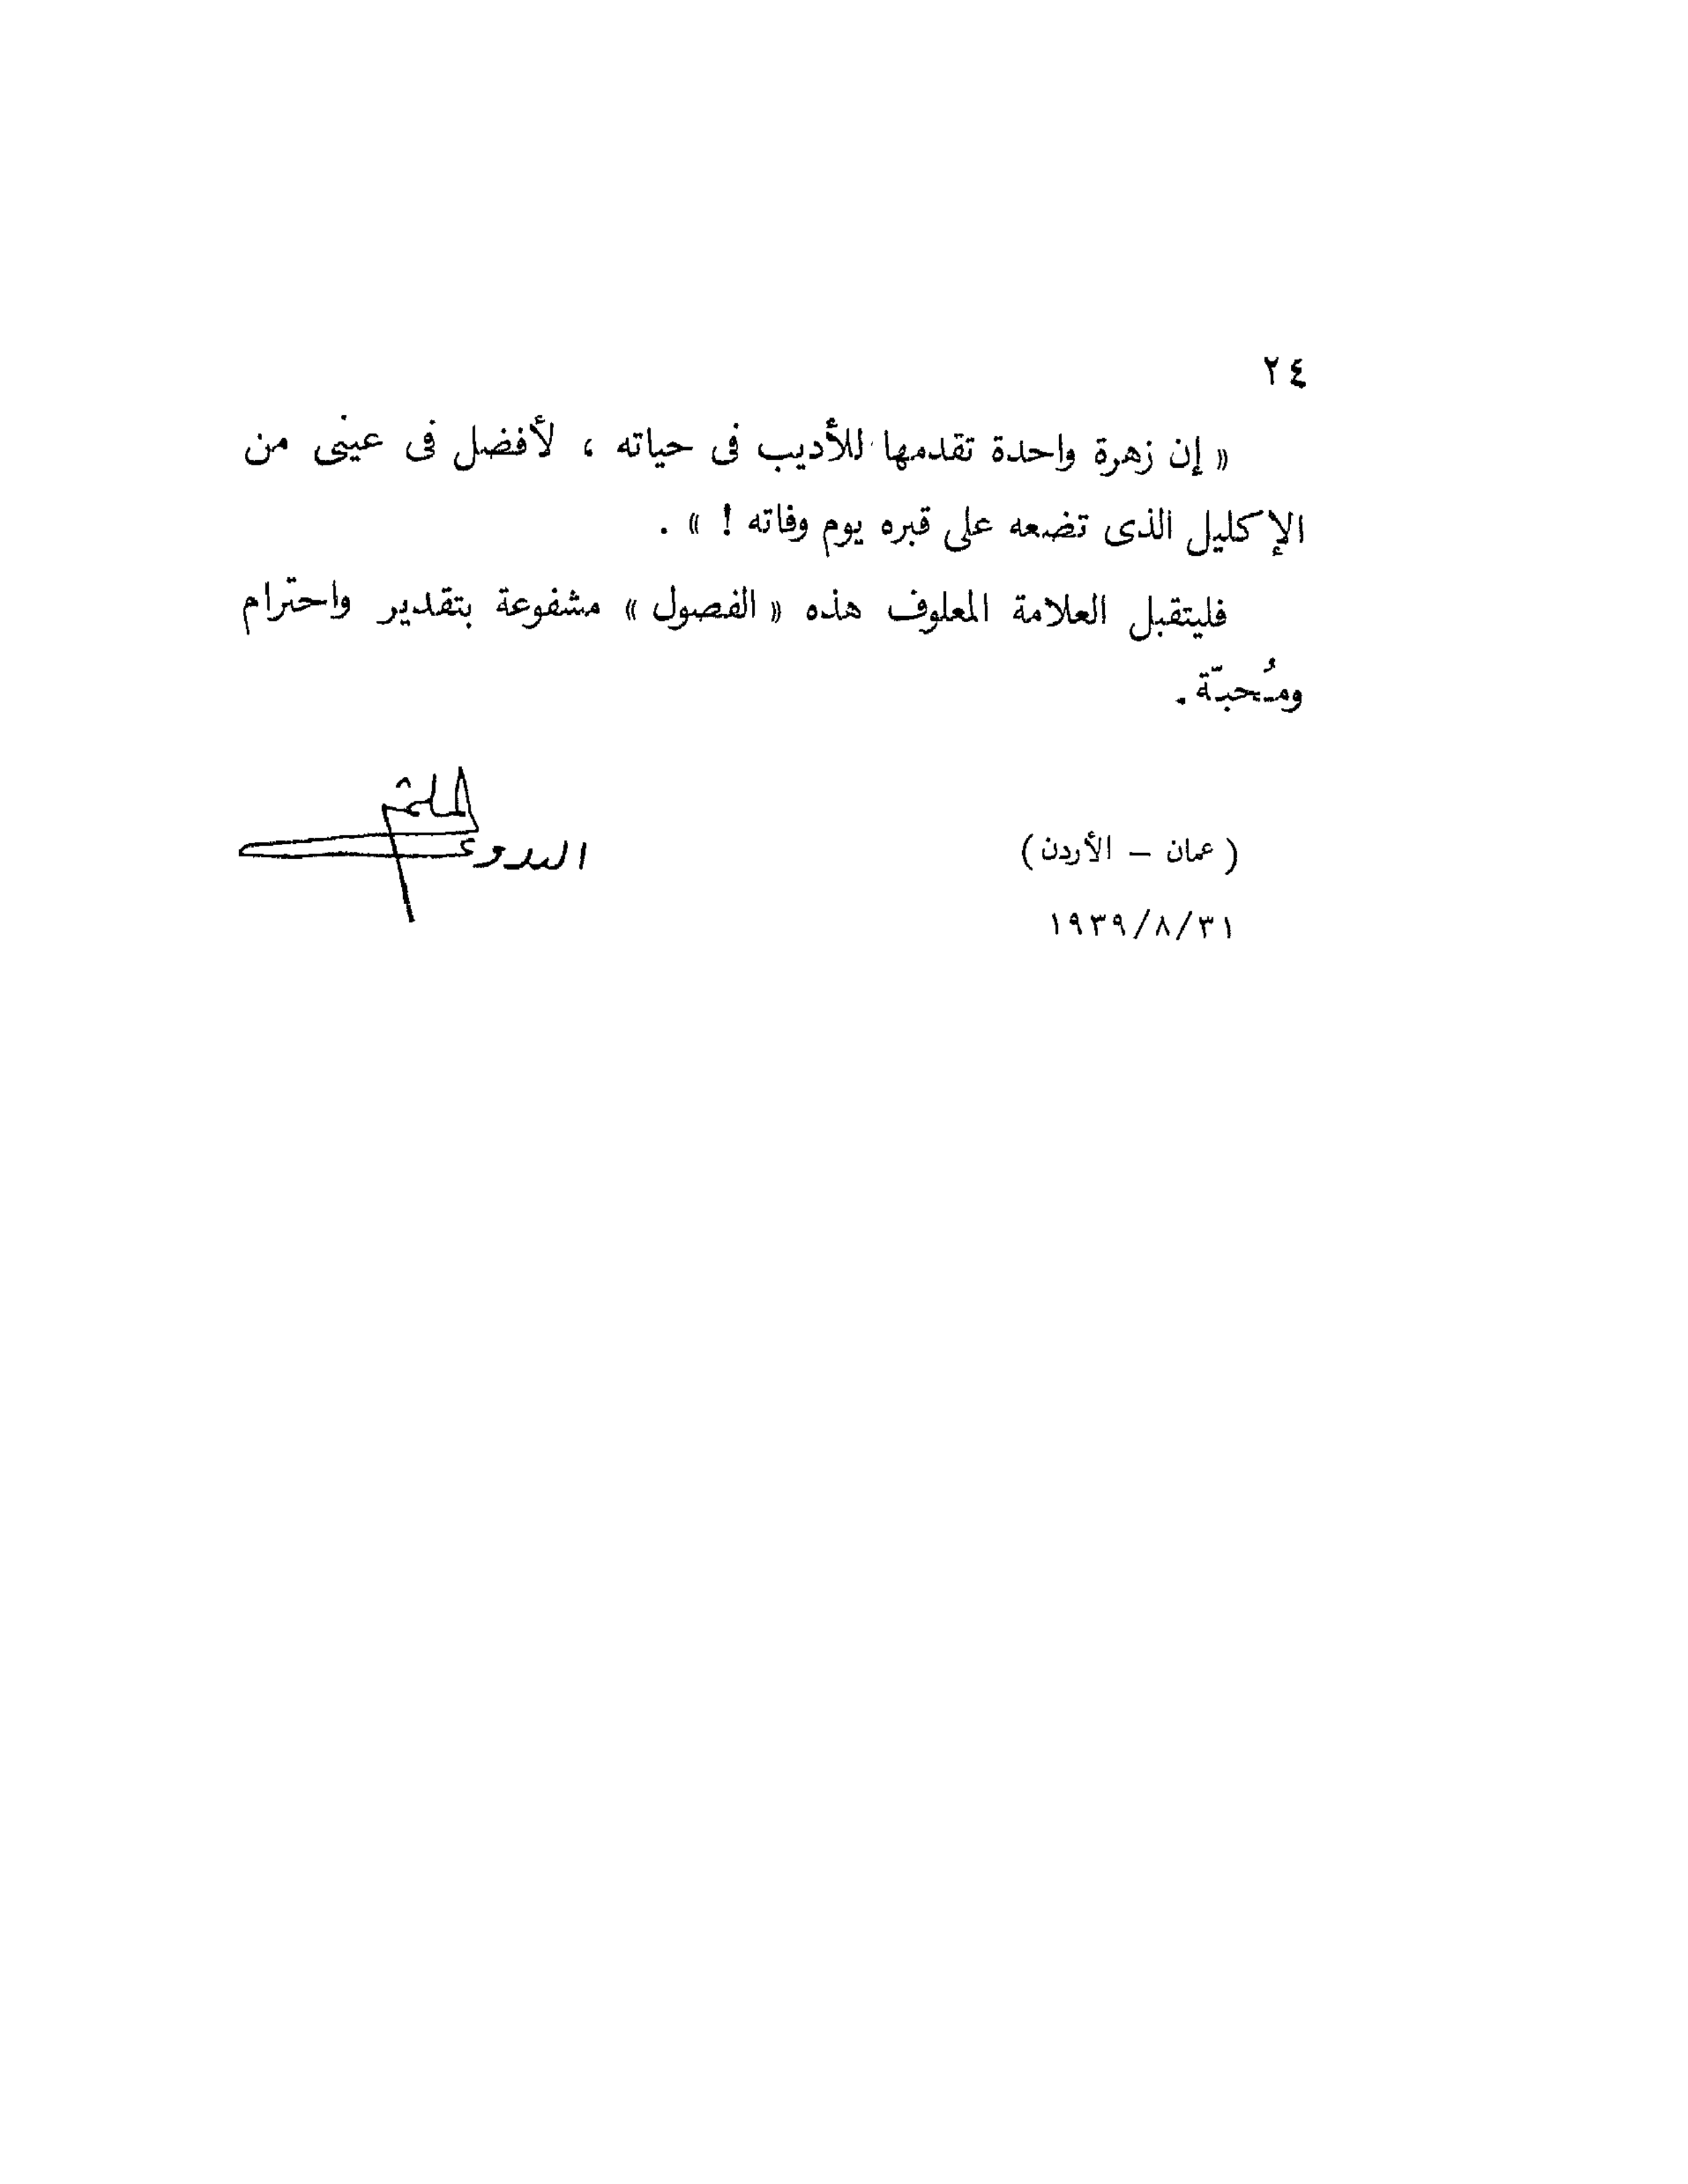 ٢٤
« إن زهرة واحدة تقدمها للأديب فى حياته ، لأفضل فى عينى من
الإكليل الذى تضعه على قبره يوم وفاته ! » .
فليتقبل العلامة المعلوف هذه « الفصول » مشفوعة بتقدير واحترام
ومُحبّة .
الملثم
( عمان – الأردن )
البدوى
١٩٣٩/٨/٣١